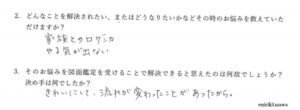 2. どんなことを解決されたい、またはどうなりたいかなどその時のお悩みを教えていた
だけますか？
家族とのロゲンカ
やる気が出ない
3. そのお悩みを図面鑑定を受けることで解決できると思えたのは何故でしょうか？
決め手は何でしたか？
きれいにして、流れが変わったことがあったから。